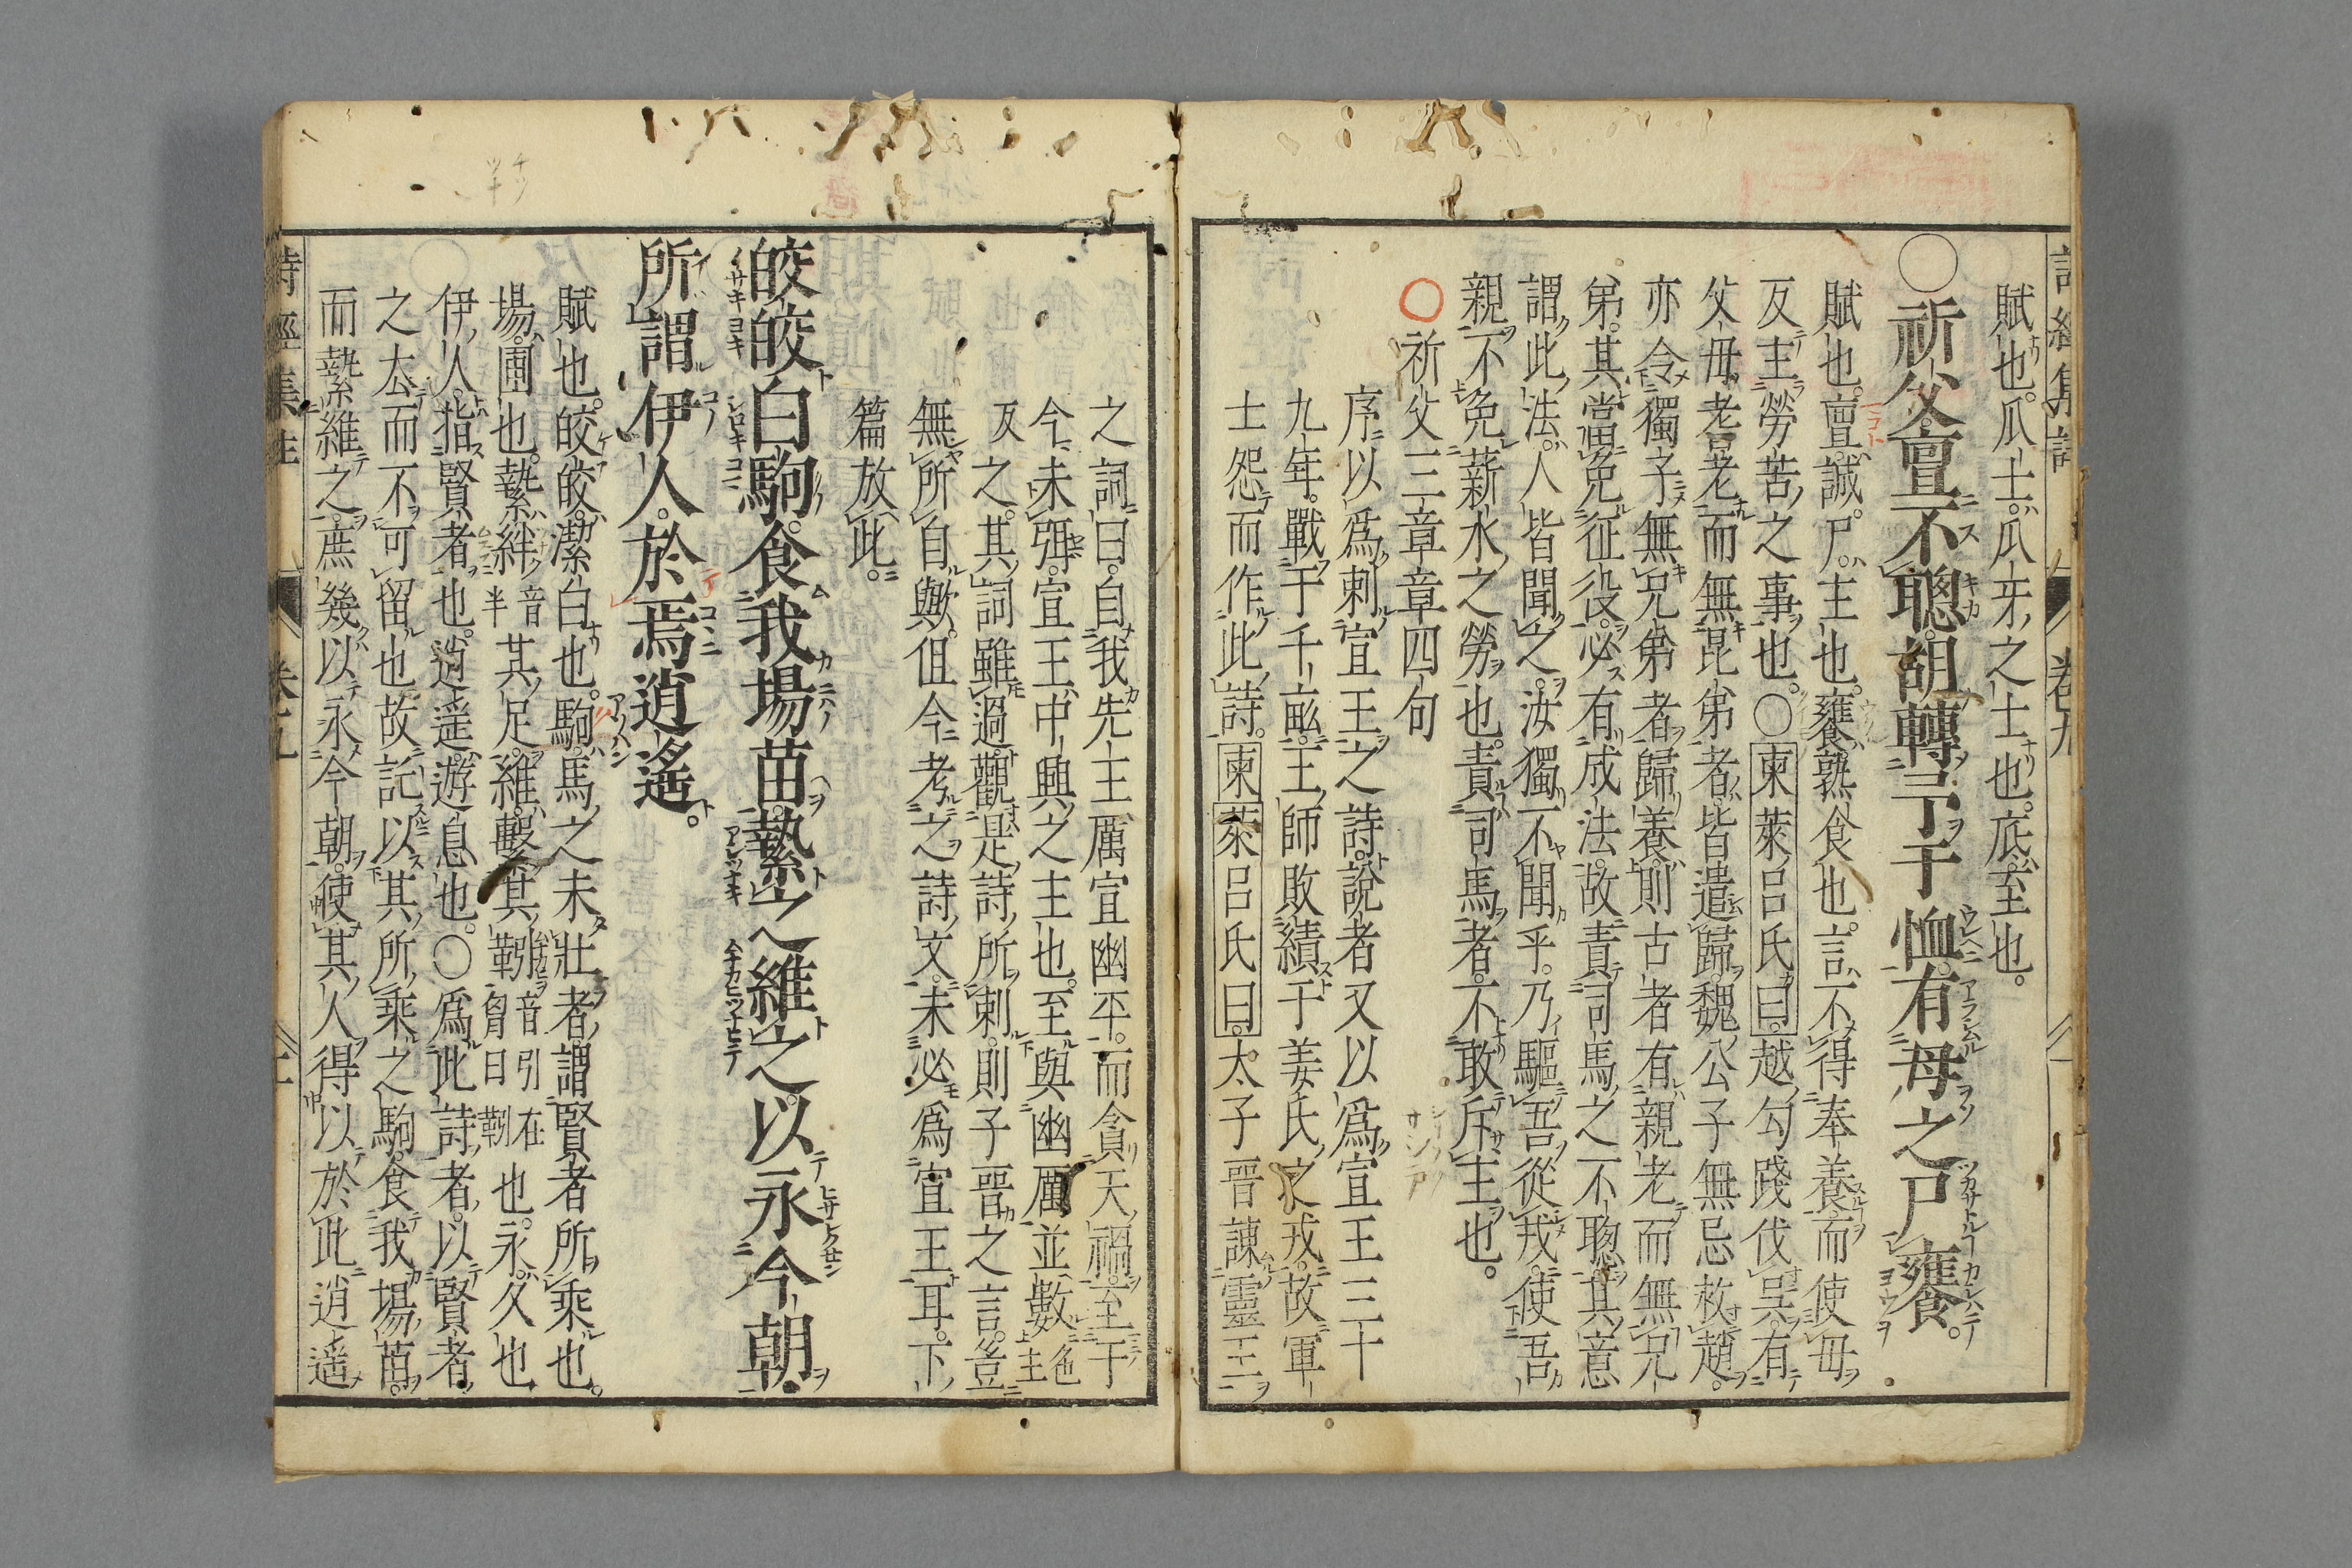 賦也。爪士。爪牙之士也。底至也。
○祈父亶不聰。胡轉予于恤。有母之尸饔。
賦也。亶。誠。尸。主也。饔。熟食也。言不得奉養。而使母
反主勞苦之事也。○東萊呂氏曰。越勾踐伐吳。有
父母老耆老而無昆弟者。皆遣歸。魏公子無忌救趙。
亦令獨子無兄弟者歸養。則古者有親老而無兄
弟。其當免征役。必有成法。故責司馬之不聰。其意
謂此法。人皆聞之。汝獨不聞乎。乃驅吾從戎。使吾
親不免薪水之勞也。責司馬者。不敢斥王也。
○祈父三章章四句
序以爲刺宣王之詩。說者又以爲宣王三十
九年。戰于千畝。王師敗績于姜氏之戎。故軍
士怨而作此詩。東萊呂氏曰。太子晋諫靈王
之詞曰。自我先王厲宣幽平。而貪天禍。至于
今未弭。宣王中興之主也。至與幽厲並數 色主
反之。其詞雖過。觀是詩所刺。則子晋之言。豈
無所自歟。但今考之詩文。未必爲宣王耳。下
篇放此。
皎皎白駒。食我場苗。縶之維之。以永今朝。
所謂伊人。於焉逍遙。
賦也。皎皎。潔白也。駒。馬之未壯者。謂賢者所乘也。
場。圃也。縶絆 音半 其足。維。繫其靷 音引在胷曰靷 也。永。久也
伊人。指賢者也。逍遥。遊息也。○爲此詩者。以賢者
之去而不可留也。故託以其所乘之駒食我場苗。
而縶維之。庶幾以永今朝。使其人得以於此逍遥
詩經集註 卷五